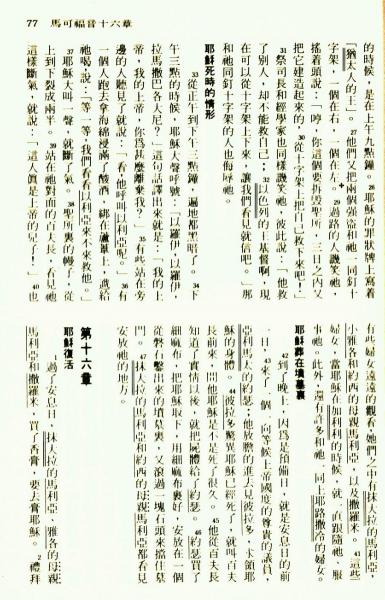 77 馬可福音十六章
的時候,是在上午九點鐘。26耶穌的罪狀牌上寫着
「猶太人的王」。27他們又把兩個強盜和祂一同釘十
字架,一個在右,一個在左。29過路的人譏笑祂,
搖着頭說:「哼,你這個要拆毀聖所,三日之內又
把它建造起來的,30從十字架上把自己救下來吧!」
31祭司長和經學家也同樣譏笑祂,彼此說:「他救
了別人,却不能救自己;32以色列的王基督啊,現
在可以從十字架上下來,讓我們看見就信吧。」那
和祂同釘十字架的人也侮辱祂。
耶穌死時的情形
33從正午到下午三點鐘,遍地都黑暗了。34下
午三點的時候,耶穌大聲呼號:「以羅伊,以羅伊,
拉馬撒巴各大尼?」這句話譯出來就是:「我的上
帝,我的上帝,你爲甚麼離棄我?」35有些站在旁
邊的人聽見了就說:「看,他呼叫以利亞呢。」36有
一個人跑去拿海綿浸滿了酸酒,綁在蘆葦上,遞給
祂喝,說:「等一等,我們看看以利亞來不來救他。」
37耶穌大叫一聲,就斷了氣。38聖所裏的幔子,從
上到下裂成兩半。39站在祂對面的百夫長,看見祂
這樣斷氣,就說:「這人眞是上帝的兒子!」40也
有些婦女遠遠的觀看,她們之中有抹大拉的馬利亞,
小雅各和約西的母親馬利亞,以及撒羅米。41這些
婦女,當耶穌在加利利的時候,就一直跟隨祂,服
事祂。此外,還有許多和祂一同上耶路撒冷的婦女。
耶穌葬在墳墓裏
42到了晚上,因爲是預備日,就是安息日的前
一日,43來了一個一向等候上帝國度的尊貴的議員,
亞利馬太的約瑟;他放膽的進去見彼拉多,求領耶
穌的身體。44彼拉多驚異耶穌已經死了,就叫百夫
長前來,問他耶穌是不是死了很久。45他從百夫長
知道了實情以後,就把屍體給了約瑟。46約瑟買了
細麻布,把耶穌取下,用細麻布裹好,安放在一個
從磐石鑿出來的墳墓裏,又滾過一塊石頭來擋住墓
門。47抹大拉的馬利亞和約西的母親馬利亞,都看見
安放祂的地方。
第十六章
耶穌復活
1過了安息日,抹大拉的馬利亞、雅各的母親
馬利亞和撒羅米,買了香膏,要去膏耶穌。2禮拜